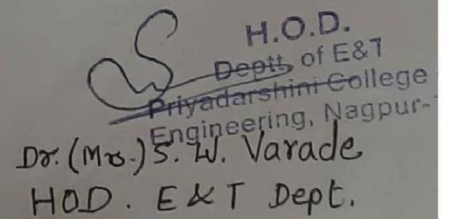 H.O.D.
Deptt. of E&T
Priyadarshini College
Engineering, Nagpur-
Dr. (Mrs.) S. W. Varade
HOD. E & T Dept.